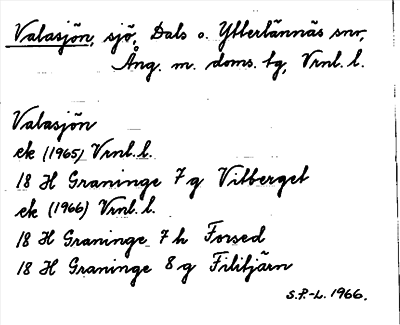 Valasjön, sjö, Dals o. Ytterlännäs snr,
Ång. m. doms. tg, Vrnl. l.
Valasjön
ek (1965) Vrnl. l.
18 H Graninge 7 g Vitberget
ek (1966) Vrnl. l.
18 H Graninge 7 h Forsed
18 H Graninge 8 g Filitjärn
S.P.-L. 1966.